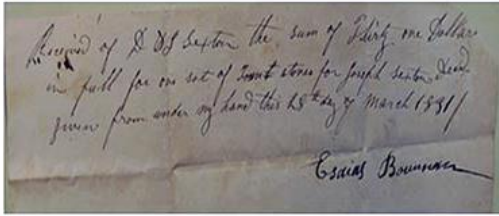 Received of D D S Sexton the sum of Thirty one Dollars
in full for one set of Tomt stones for Joseph Sexton Decd
given from under my hand this 28th day of March 1831
Esaias Bowman